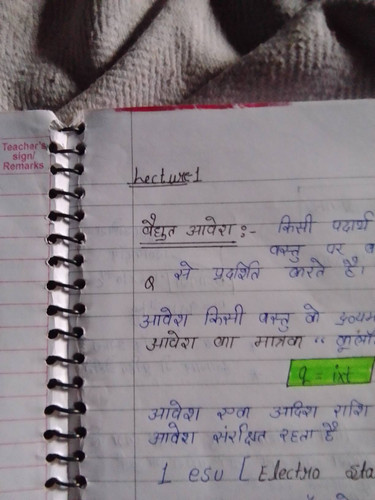 Teacher's
sign/
Remarks
Lecture-1
वैधुत आवेश :- किसी पदार्थ
वस्तु पर
Q से प्रदर्शित करते है।
आवेश किसी वस्तु के
आवेश का मात्रक "
q = ixt
आवेश एक अदिश राशि
आवेश संरक्षित रहता है
1 esu [ Electro Sta